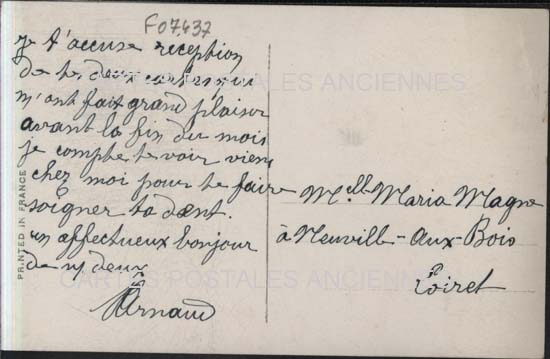 F07437
je t'accuse reception
de tes deux cartes qui
m'ont fait grand plaisir
avant la fin du mois
je compte te voir vien
chez moi pour te faire
soigner ta dent.
un affectueux bonjour
de deux
Arnaud
Mcelle Maria Magne
à Neuvill-Aux-Bois
Loiret
PRINTED IN FRANCE
CARTES POSTALES ANCIENNES
CARTES POSTALES ANCIENNES